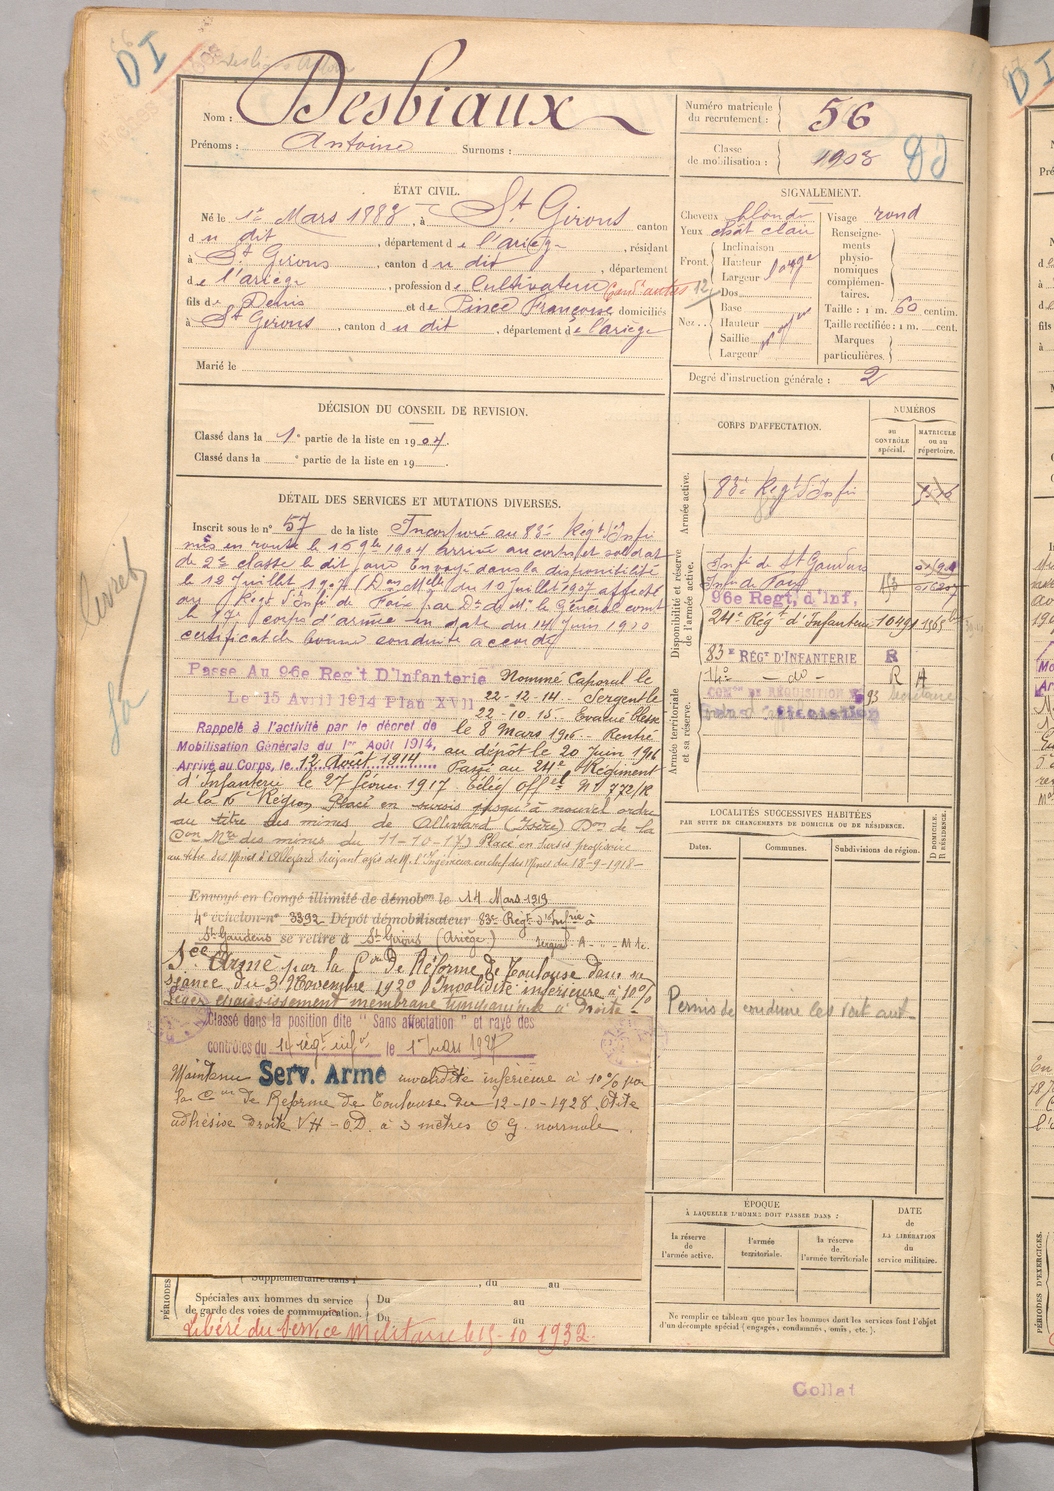 DI
Nom : Desbiaux
Prénoms : Antoine Surnoms :
Numéro matricule du recrutement : 56
Classe de mobilisation : 1908
ÉTAT CIVIL.
Né le 1er Mars 1888, à St Girons canton
du dit, département de l'ariège, résidant
à St Girons, canton du dit, département
de l'ariège, profession de Cultivateur
fils de Denis et de Pince Françoise domiciliés
à St Girons, canton du dit, département de l'ariège
Marié le
SIGNALEMENT.
Cheveux blonds
Yeux chât clair
Front.
Inclinaison
Hauteur
Largeur large
Nez..
Dos
Base
Hauteur
Saillie
Largeur
Visage rond
Renseignements physionomiques complémentaires.
Taille : 1 m. 60 centim.
Taille rectifiée : 1 m. cent.
Marques particulières.
Degré d'instruction générale : 2
DÉCISION DU CONSEIL DE REVISION.
Classé dans la 1e partie de la liste en 1907.
Classé dans la e partie de la liste en 19
CORPS D'AFFECTATION.
NUMÉROS
au CONTRÔLE spécial.
MATRICULE ou au répertoire.
Armée active.
83e Régt d'Infie
Disponibilité et réserve de l'armée active.
Infie de St Gaudens
Infie de Foix
96e Regt, d'Inf,
24e Régt d'Infanterie 10491
83e RÉGt D'INFANTERIE R
14e - do - R A
Armée territoriale et sa réserve.
COMon DE RÉQUISITION 93
Sans affectation
DÉTAIL DES SERVICES ET MUTATIONS DIVERSES.
Inscrit sous le n° 57 de la liste Incorporé au 83e Régt d'Infie
mis en route le arrivé au corps et soldat
de 2e classe le dit jour Envoyé dans la disponibilité
le 12 Juillet 1907 du 10 Juillet 1907 affecté
au Régt d'Infie de Foix par Dn de Mr le Général comt
le 17e corps d'armée en date du 14 Juin 1910
certificat de bonne conduite accordé
Passe Au 96e Reg't D'Infanterie
Le 15 Avril 1914 Plan XVII
Rappelé à l'activité par le décret de
Mobilisation Générale du 1er Août 1914,
Arrivé au Corps, le 12 Août 1914
Nommé Caporal le
22-12-14. Sergent le
22-10-15. Evacué blessé
le 8 Mars 1916. Rentré
au dépôt le 20 Juin 1916
Passé au 24e Régiment
d'Infanterie le 27 février 1917.
de la Région Placé en sursis jusqu'à nouvel ordre
au titre des mines de Allevard (Isère) Don de la
des mines du 11-10-17) Placé en sursis provisoire
au titre des Mines d'Allevard suivant avis de M. l'Ingénieur en chef des Mines du 18-9-1918
Envoyé en Congé illimité de démobon le 14 Mars 1919
4e échelon n° 3392 Dépôt démobilisateur 83e Régt d'Infrie à
St Gaudens se retire à St Girons (Ariège)
Sce Armé par la Con de Réforme de Toulouse dans sa
séance du 3 Novembre 1920 Invalidité inférieure à 10%
Léger épaississement membrane tympanique à droite
Classé dans la position dite "Sans affectation" et rayé des
contrôles du 14 rég. infie le 1er mars 1927
Maintenu Serv. Armé invalidité inférieure à 10% par
la Con de Réforme de Toulouse du 12-10-1928. Otite
adhésive droite VH - OD. à 3 mètres O G. normale.
LOCALITÉS SUCCESSIVES HABITÉES
PAR SUITE DE CHANGEMENTS DE DOMICILE OU DE RÉSIDENCE.
Dates. Communes. Subdivisions de région.
D DOMICILE. R RÉSIDENCE.
Permis de conduire les voit aut
ÉPOQUE
À LAQUELLE L'HOMME DOIT PASSER DANS :
la réserve de l'armée active.
l'armée territoriale.
la réserve de l'armée territoriale
DATE de LA LIBÉRATION du service militaire.
Ne remplir ce tableau que pour les hommes dont les services font l'objet
d'un décompte spécial (engagés, condamnés, omis, etc.).
PÉRIODES
Supplémentaire dans l' , du au
Spéciales aux hommes du service de garde des voies de communication.
Du au
Du au
Libéré du Service Militaire le 15-10 1932.
Collat